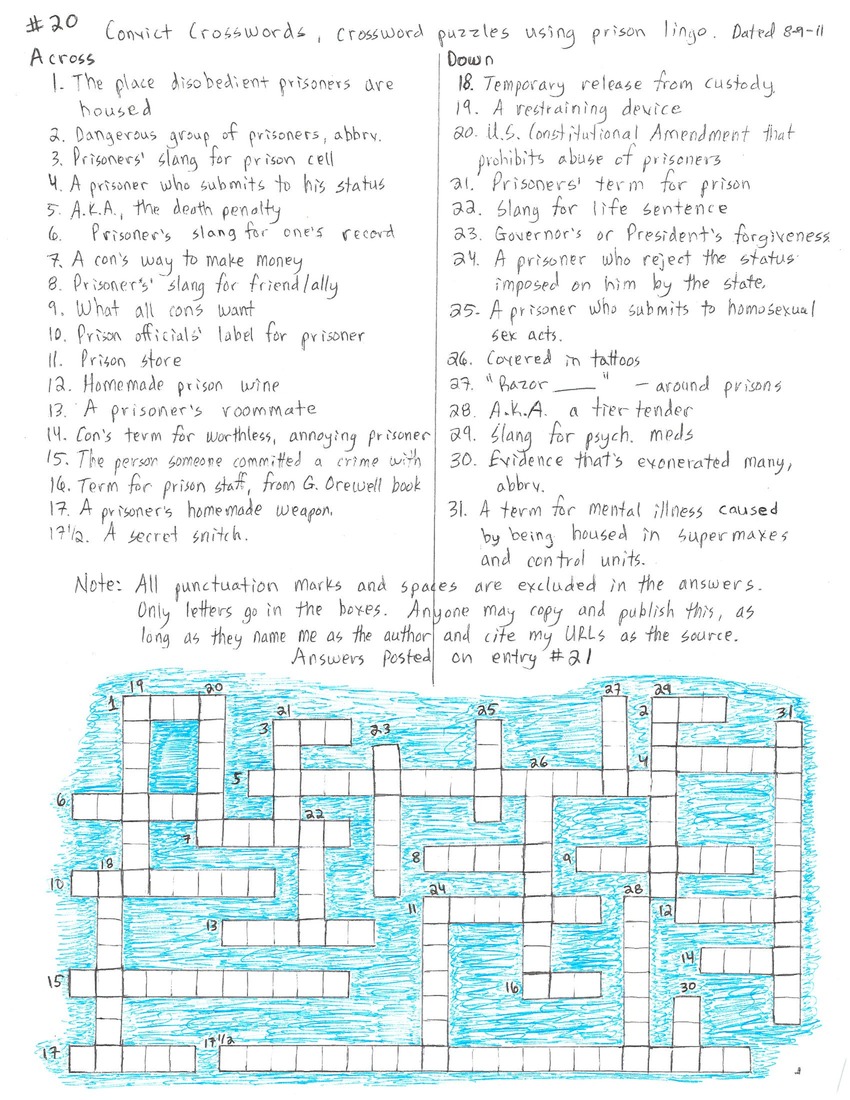 #20 Convict Crosswords, crossword puzzles using prison lingo. Dated 8-9-11
Across
1. The place disobedient prisoners are
housed
2. Dangerous group of prisoners, abbrv.
3. Prisoners' slang for prison cell
4. A prisoner who submits to his status
5. A.K.A., the death penalty
6. Prisoner's slang for one's record
7. A con's way to make money
8. Prisoner's slang for friend/ally
9. What all cons want
10. Prison officials' label for prisoner
11. Prison store
12. Homemade prison wine
13. A prisoner's roommate
14. Con's term for worthless, annoying prisoner
15. The person someone committed a crime with
16. Term for prison staff, from G. Orewell book
17. A prisoner's homemade weapon.
17 1/2. A secret snitch.
Down
18. Temporary release from custody
19. A restraining device
20. U.S. Constitutional Amendment that
prohibits abuse of prisoners
21. Prisoners' term for prison
22. Slang for life sentence
23. Governor's or President's forgiveness
24. A prisoner who reject the status
imposed on him by the state.
25. A prisoner who submits to homosexual
sex acts.
26. Covered in tattoos
27. "Razor ____" - around prisons
28. A.K.A. a tier tender
29. Slang for psych. meds
30. Evidence that's exonerated many,
abbrv.
31. A term for mental illness caused
by being housed in supermaxes
and control units.
Note: All punctuation marks and spaces are excluded in the answers.
Only letters go in the boxes. Anyone may copy and publish this, as
long as they name me as the author and cite my URLs as the source.
Answers Posted on entry #21
19 20 27 29
1 21 25 2 31
3 23
26 4
5
6 22
7
8 9
18
10 24 28
11 12
13
14
15 16 30
17 1/2
17